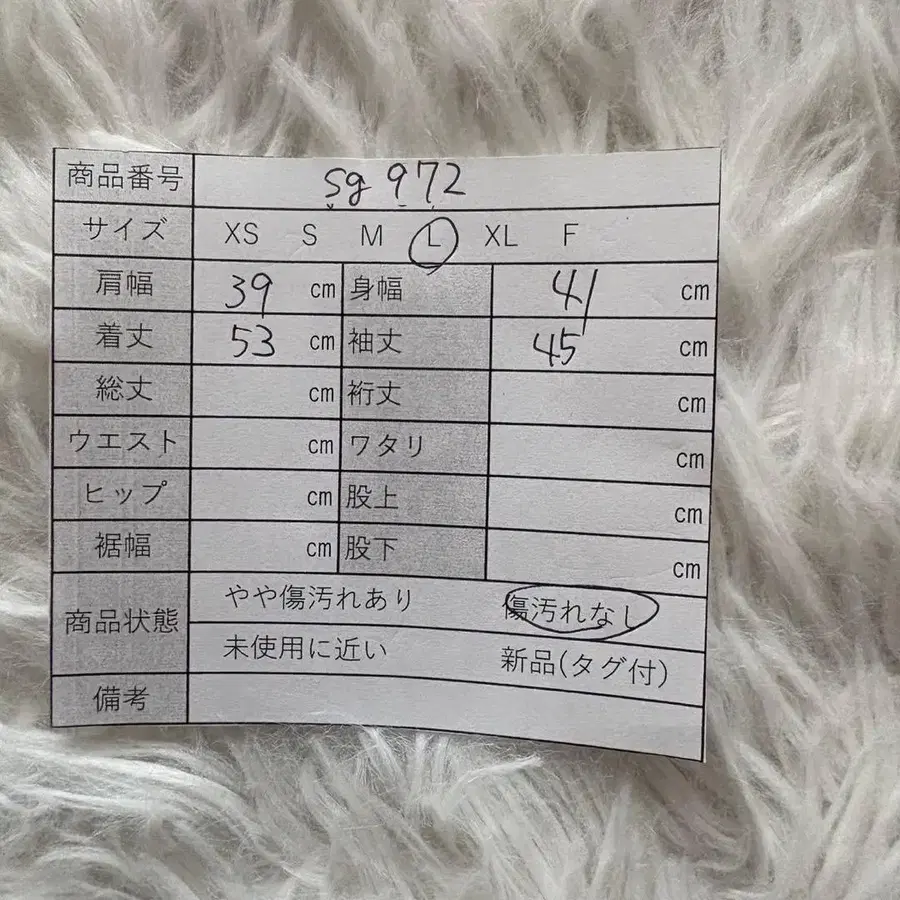 商品番号 sg 972
サイズ XS S M L XL F
肩幅 39 cm 身幅 41 cm
着丈 53 cm 袖丈 45 cm
総丈 cm 裄丈 cm
ウエスト cm ワタリ cm
ヒップ cm 股上 cm
裾幅 cm 股下 cm
商品状態 やや傷汚れあり 傷汚れなし
未使用に近い 新品(タグ付)
備考